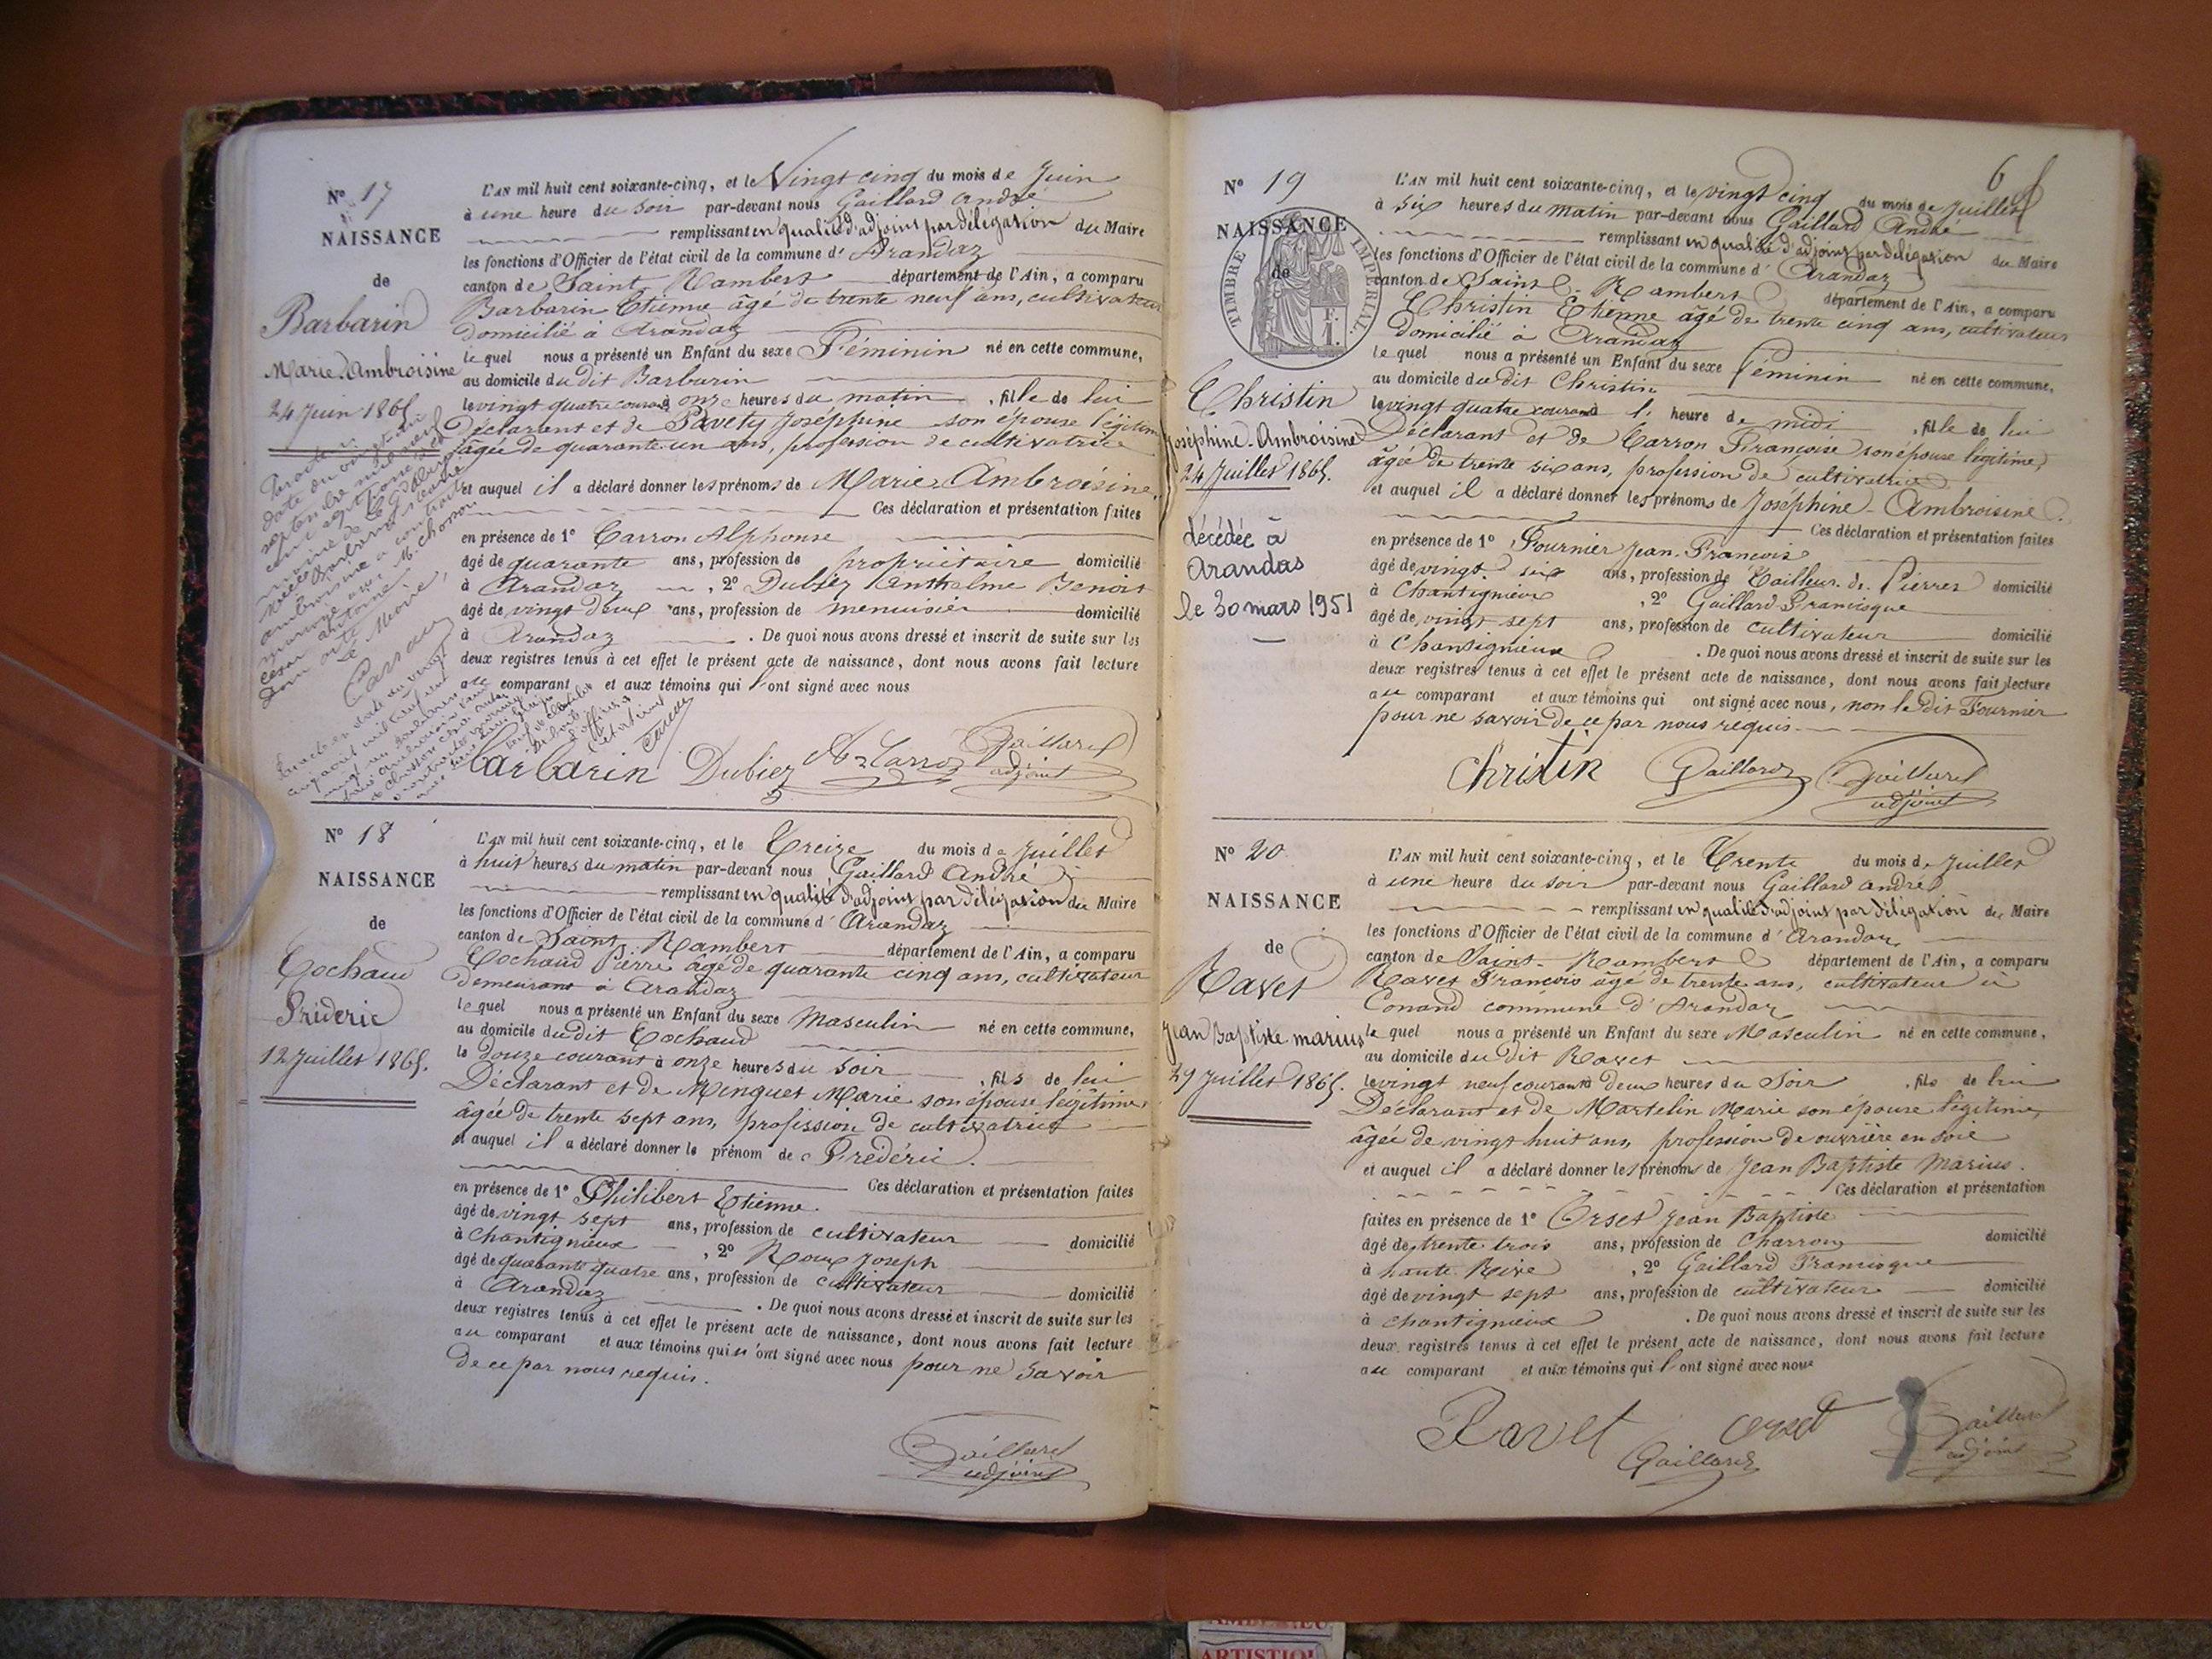 N° 17
NAISSANCE
de
Barbarin
Marie Ambroisine
24 Juin 1865
L'AN mil huit cent soixante-cinq, et le Vingt cinq du mois de Juin
à une heure du soir par-devant nous Gaillard André
remplissant en qualité d'adjoint par délégation du Maire
les fonctions d'Officier de l'état civil de la commune d'Arandaz
canton de Saint Rambert département de l'Ain, a comparu
Barbarin Etienne âgé de trente neuf ans, cultivateur
domicilié à Arandaz
lequel nous a présenté un Enfant du sexe Féminin né en cette commune,
au domicile du dit Barbarin
le vingt quatre courant à onze heures du matin, fille de lui
Déclarant et de Pavety Joséphine son épouse légitime
âgée de quarante un ans, profession de cultivatrice
et auquel il a déclaré donner les prénoms de Marie Ambroisine.
Ces déclaration et présentation faites
en présence de 1° Carron Alphonse
âgé de quarante ans, profession de propriétaire domicilié
à Arandaz, 2° Dubiez Anthelme Benoit
âgé de vingt deux ans, profession de menuisier domicilié
à Arandaz. De quoi nous avons dressé et inscrit de suite sur les
deux registres tenus à cet effet le présent acte de naissance, dont nous avons fait lecture
au comparant et aux témoins qui l'ont signé avec nous
Barbarin Dubiez A. Carron Gaillard
adjoint
N° 18
NAISSANCE
de
Cochaud
Fréderic
12 Juillet 1865.
L'AN mil huit cent soixante-cinq, et le Treize du mois de Juillet
à huit heures du matin par-devant nous Gaillard André
remplissant en qualité d'adjoint par délégation du Maire
les fonctions d'Officier de l'état civil de la commune d'Arandaz
canton de Saint Rambert département de l'Ain, a comparu
Cochaud Pierre âgé de quarante cinq ans, cultivateur
demeurant à Arandaz
lequel nous a présenté un Enfant du sexe Masculin né en cette commune,
au domicile du dit Cochaud
le douze courant à onze heures du soir, fils de lui
Déclarant et de Minguet Marie son épouse légitime,
âgée de trente sept ans, profession de cultivatrice
et auquel il a déclaré donner le prénom de Frédéric.
Ces déclaration et présentation faites
en présence de 1° Philibert Etienne
âgé de vingt sept ans, profession de cultivateur domicilié
à Chantignieux, 2° Roux Joseph
âgé de quarante quatre ans, profession de cultivateur domicilié
à Arandaz. De quoi nous avons dressé et inscrit de suite sur les
deux registres tenus à cet effet le présent acte de naissance, dont nous avons fait lecture
au comparant et aux témoins qui n'ont signé avec nous pour ne savoir
de ce par nous requis.
Gaillard
adjoint
6
N° 19
NAISSANCE
de
TIMBRE IMPERIAL.
1 F.
Christin
Joséphine-Ambroisine
24 Juillet 1865.
décédée à
Arandas
le 30 mars 1951
L'AN mil huit cent soixante-cinq, et le vingt cinq du mois de Juillet
à six heures du matin par-devant nous Gaillard André
remplissant en qualité d'adjoint par délégation du Maire
les fonctions d'Officier de l'état civil de la commune d'Arandaz
canton de Saint-Rambert département de l'Ain, a comparu
Christin Etienne âgé de trente cinq ans, cultivateur
domicilié à Arandaz
lequel nous a présenté un Enfant du sexe Féminin né en cette commune,
au domicile du dit Christin
le vingt quatre courant à l' heure de midi, fille de lui
Déclarant et de Carron Françoise son épouse légitime,
âgée de trente six ans, profession de cultivatrice
et auquel il a déclaré donner les prénoms de Joséphine-Ambroisine.
Ces déclaration et présentation faites
en présence de 1° Fournier Jean-François
âgé de vingt six ans, profession de Tailleur de Pierres domicilié
à Chantignieux, 2° Gaillard Francisque
âgé de vingt sept ans, profession de cultivateur domicilié
à Chantignieux. De quoi nous avons dressé et inscrit de suite sur les
deux registres tenus à cet effet le présent acte de naissance, dont nous avons fait lecture
au comparant et aux témoins qui ont signé avec nous, non le dit Fournier
pour ne savoir de ce par nous requis
Christin Gaillard Gaillard
adjoint
N° 20
NAISSANCE
de
Ravet
Jean Baptiste marius
29 Juillet 1865.
L'AN mil huit cent soixante-cinq, et le Trente du mois de Juillet
à une heure du soir par-devant nous Gaillard André
remplissant en qualité d'adjoint par délégation du Maire
les fonctions d'Officier de l'état civil de la commune d'Arandaz
canton de Saint-Rambert département de l'Ain, a comparu
Ravet François âgé de trente ans, cultivateur à
Conand commune d'Arandaz
lequel nous a présenté un Enfant du sexe Masculin né en cette commune,
au domicile du dit Ravet
le vingt neuf courant à deux heures du Soir, fils de lui
Déclarant et de Martelin Marie son épouse légitime,
âgée de vingt huit ans, profession de ouvrière en soie
et auquel il a déclaré donner les prénoms de Jean Baptiste Marius.
Ces déclaration et présentation
faites en présence de 1° Orset Jean Baptiste
âgé de trente trois ans, profession de Charron domicilié
à haute Reive, 2° Gaillard Francisque
âgé de vingt sept ans, profession de cultivateur domicilié
à Chantignieux. De quoi nous avons dressé et inscrit de suite sur les
deux registres tenus à cet effet le présent acte de naissance, dont nous avons fait lecture
au comparant et aux témoins qui l'ont signé avec nous
Ravet Orset Gaillard
Gaillard adjoint